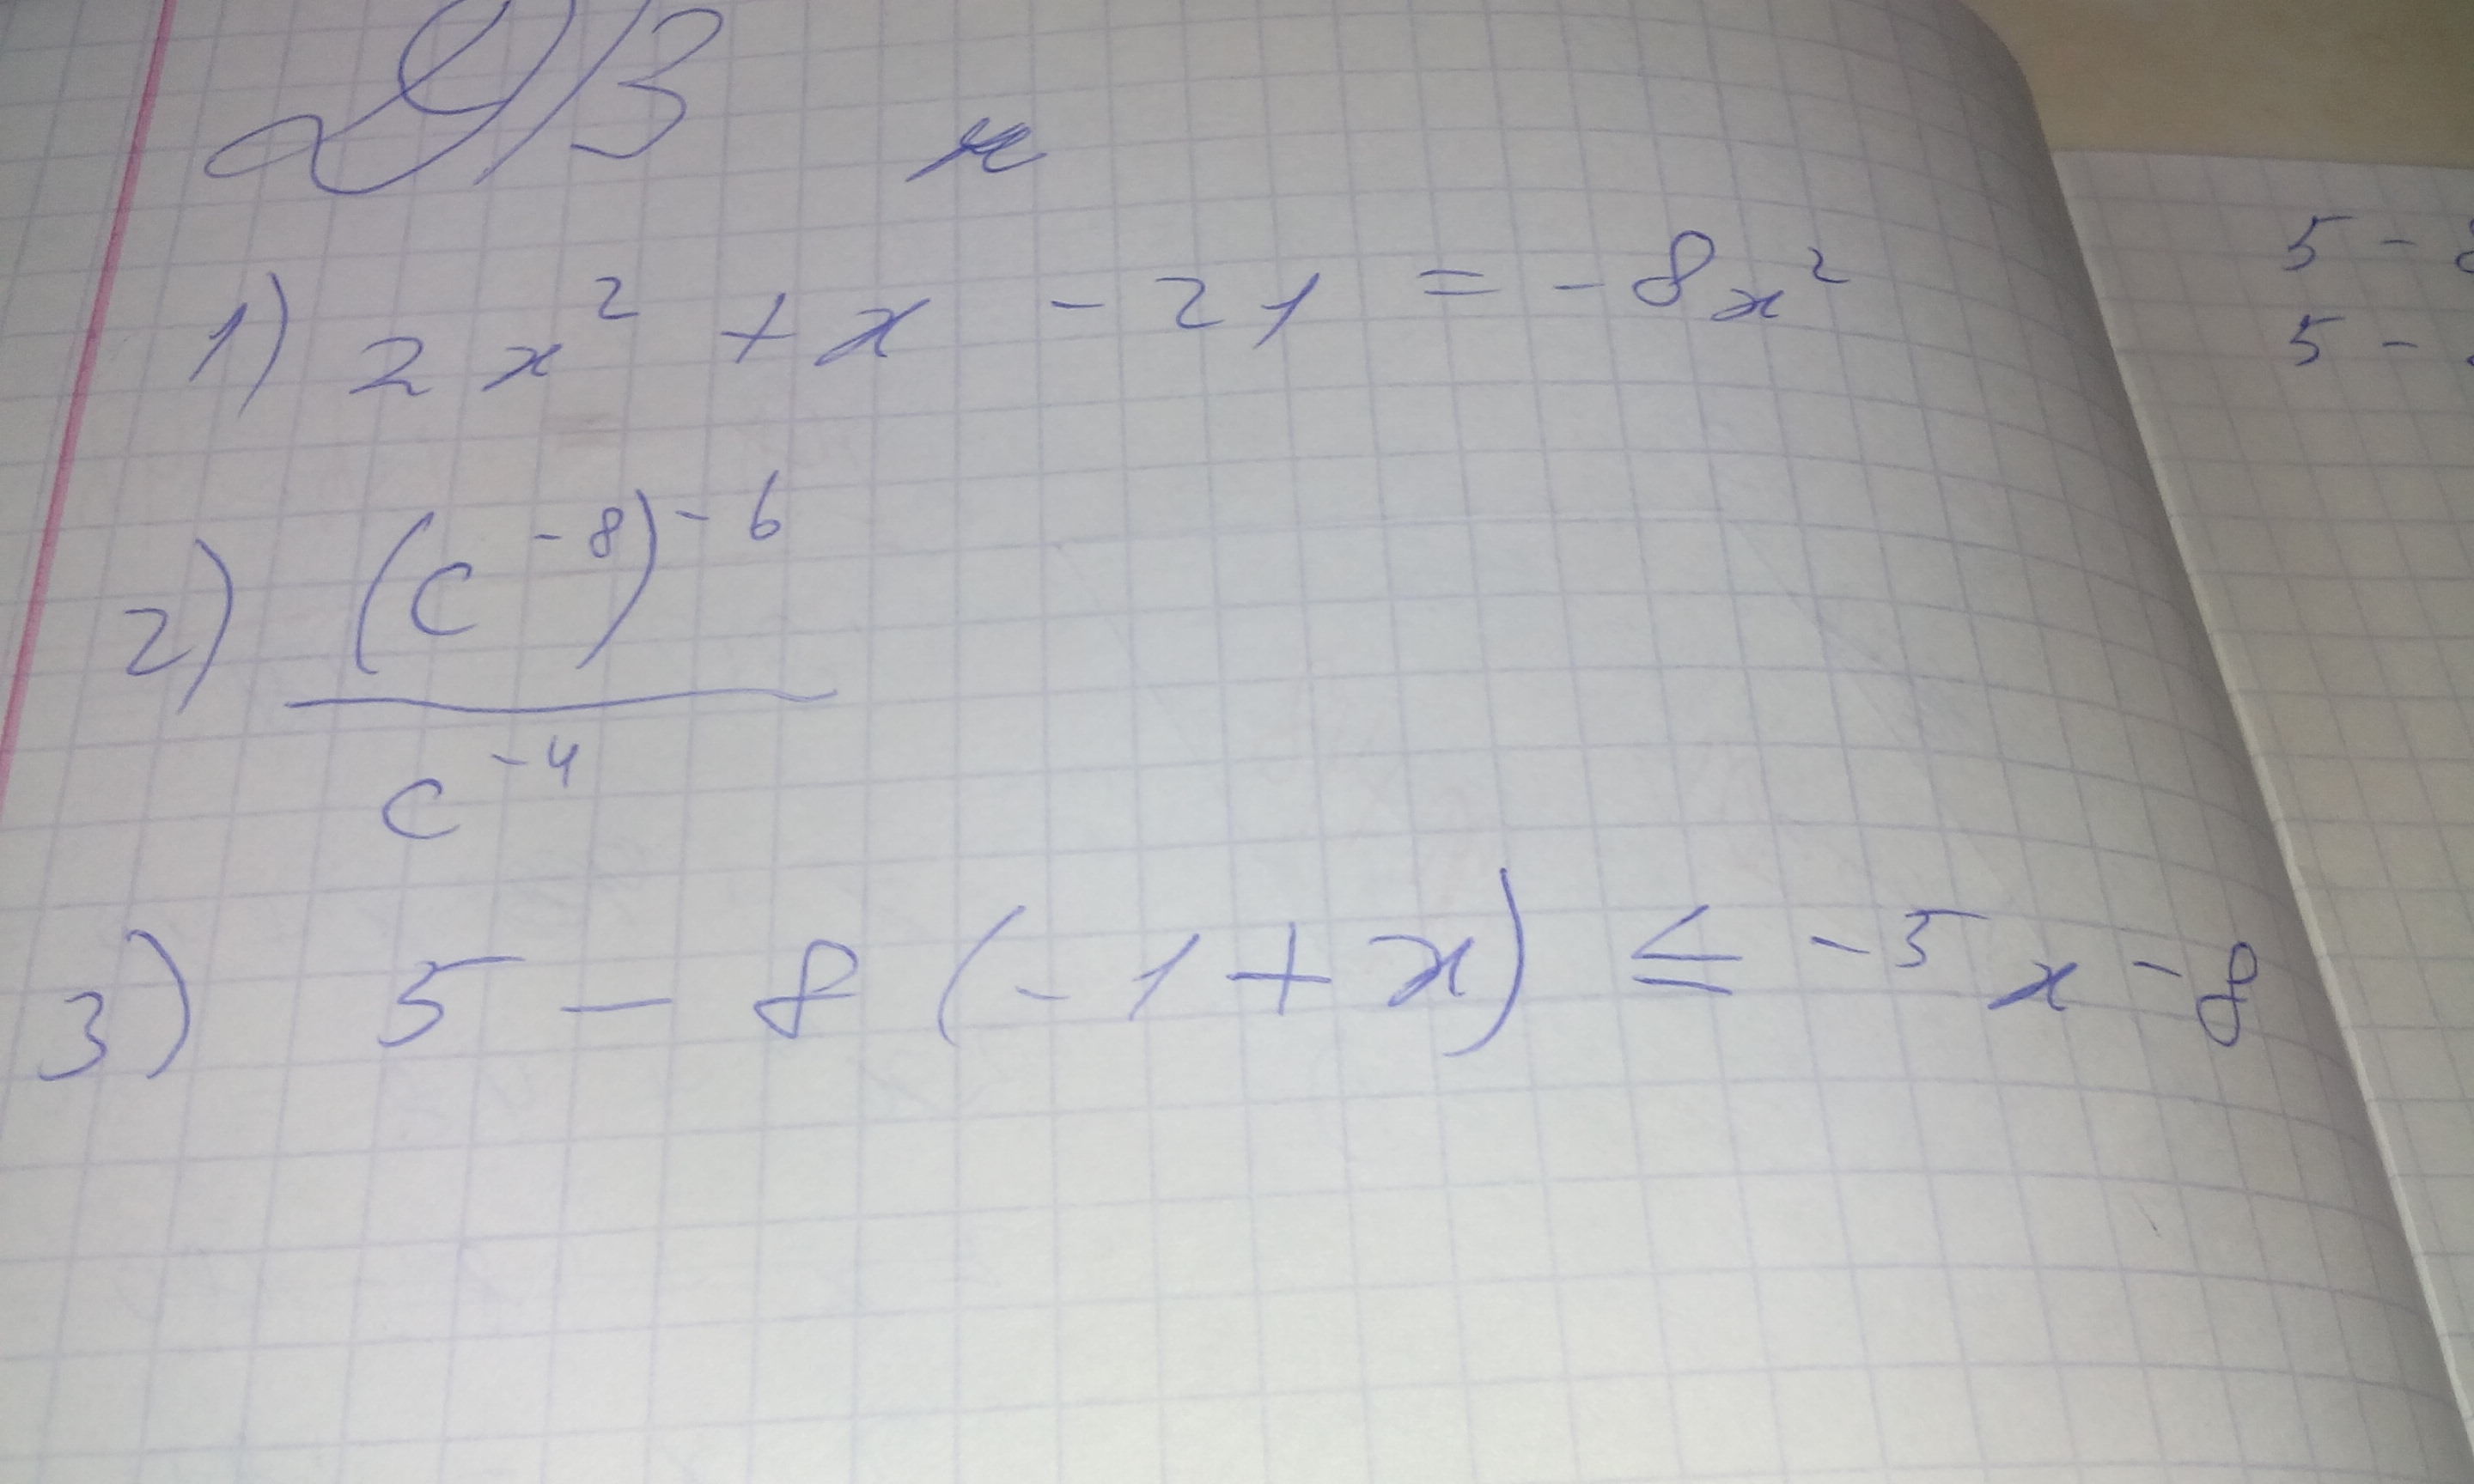 Д/З
1) 2x² + x - 21 = -8x²
2) (c⁻⁸)⁻⁶
c⁻⁴
3) 5 - 8 (-1 + x) ≤ -5x - 8
5 -
5 -